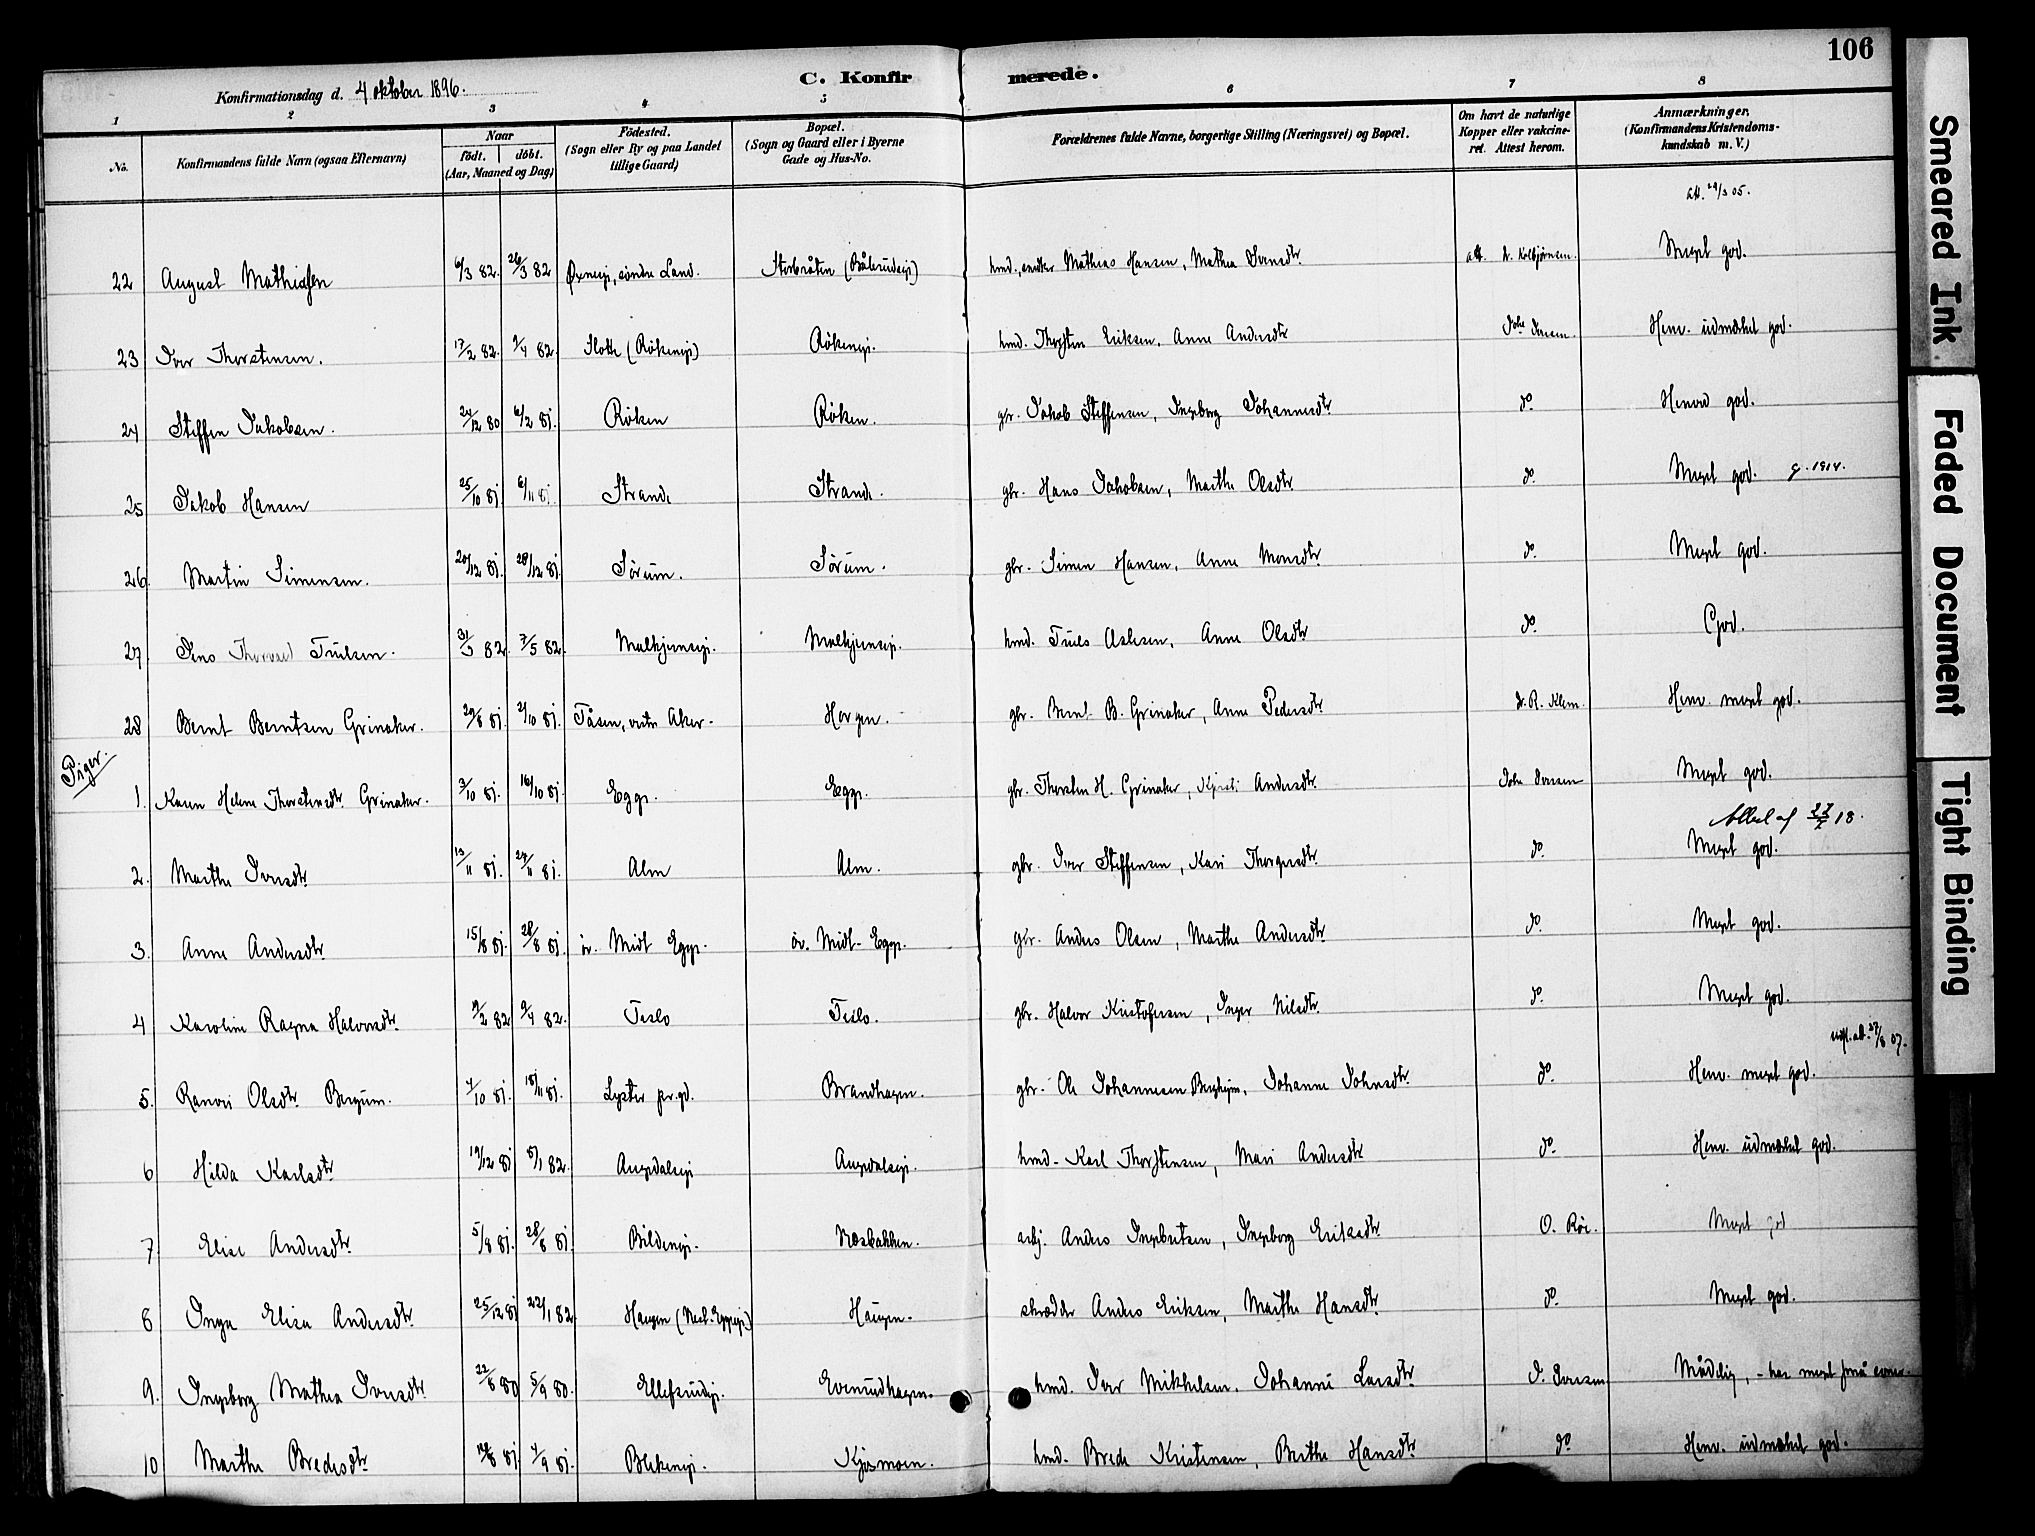 106
C. Konfirmerede.
Konfirmationsdag d. 4 oktober 1896.
1 2 3 4 5 6 7 8
No.
Konfirmandens fulde Navn (ogsaa Efternavn)
Naar
födt. döbt.
(Aar, Maaned og Dag)
Födested.
(Sogn eller By og paa Landet
tillige Gaard)
Bopæl.
(Sogn og Gaard eller i Byerne
Gade og Hus-No.
Forældrenes fulde Navne, borgerlige Stilling (Næringsvei) og Bopæl.
Om havt de naturlige
Kopper eller vakcine-
ret. Attest herom.
Anmærkninger,
(Konfirmandens Kristendoms-
kundskab m. V.)
att. 29/3 05.
22 August Mathiasen 6/3 82. 26/3 82 søndre Land. hmd., snidker Mathias Hansen, Mathea Iversdtr. att. Meget god.
23 Iver Thorstensen. 17/2 82. 9/4 82. Sloth (Rökeneje) Rökeneje. hmd. Thorsten Eriksen, Anne Andersdtr Johs Iversen. Henv. udmærket god.
24 Steffen Jakobsen. 24/12 80 6/2 81. Röken Röken. gbr. Jakob Steffensen, Ingeborg Johannesdtr do Henved god.
25 Jakob Hansen 25/10 81 6/11 81. Strande Strande. gbr. Hans Jakobsen, Marthe Olsdtr do Meget god. g. 1914.
26. Martin Simensen. 20/12 81. 28/12 81. Sörum. Sörum. gbr. Simen Hansen, Anne Monsdtr do Meget god.
27. Jens Thorvald Truelsen. 31/3 82. 7/5 82. hmd. Truels Aslesen, Anne Olsdtr do God.
28 Bernt Berntsen Grinaker. 29/8 81. 2/10 81. Tåsen, vestre Aker. Horgen. gbr. Bernt B. Grinaker, Anne Pedersdtr Dr. R. Klem. Henv. meget god.
Piger.
1. Karen Helene Thorstensdtr Grinaker. 3/10 81. 16/10 81. Egge. Egge. gbr. Thorsten H. Grinaker, Kjersti Andersdtr. Johs Iversen Meget god.
Attest af 18.
2. Marthe Iversdtr 13/11 81. 27/11 81. Alm Alm. gbr. Iver Steffensen, Kari Thorgersdtr. do Meget god.
3. Anne Andersdtr 15/8 81. 28/8 81. öv. Midt Egge. öv. Midt-Egge. gbr. Anders Olsen, Marthe Andersdtr do Meget god.
4 Karoline Ragna Halvorsdtr. 9/2 82 9/4 82. Teslo Teslo. gbr. Halvor Kristofersen, Inger Nilsdtr. do Meget god.
utfl. att. 27/8 07.
5. Ranvei Olsdtr Bergum. 4/10 81. 13/11 81. Lyster pr.gd. Brandhagen. gbr. Ole Johannesen Bergheim, Johanne Johnsdtr. do Henv. meget god.
6 Hilda Karlsdtr 19/12 81 8/1 82. Augedalseje Augedalseje. hmd. Karl Thorstensen, Mari Andersdtr do Henv. udmærket god.
7. Elise Andersdtr. 5/8 81. 28/8 81. Bildeneje. Næsbakken. arbj. Anders Ingebretsen, Ingeborg Eriksdtr O. Röe. Meget god
8 Inga Elisa Andersdtr 25/12 81 22/1 82. Haugen Haugen. skrædder Anders Eriksen, Marthe Hansdtr do Meget god.
9. Ingeborg Mathea Iversdtr. 22/8 80 5/9 80. Ellefsrudeje. Evenrudhagen. hmd. Iver Mikkelsen, Johanne Larsdtr. J. Iversen Mådelig, - har meget små evner.
10 Marthe Bredesdtr 14/8 81. 4/9 81. Blekeneje. Kjösmoen. hmd. Brede Kristensen, Berthe Hansdtr do Henv. udmærket god.
Smeared Ink
Faded Document
Tight Binding